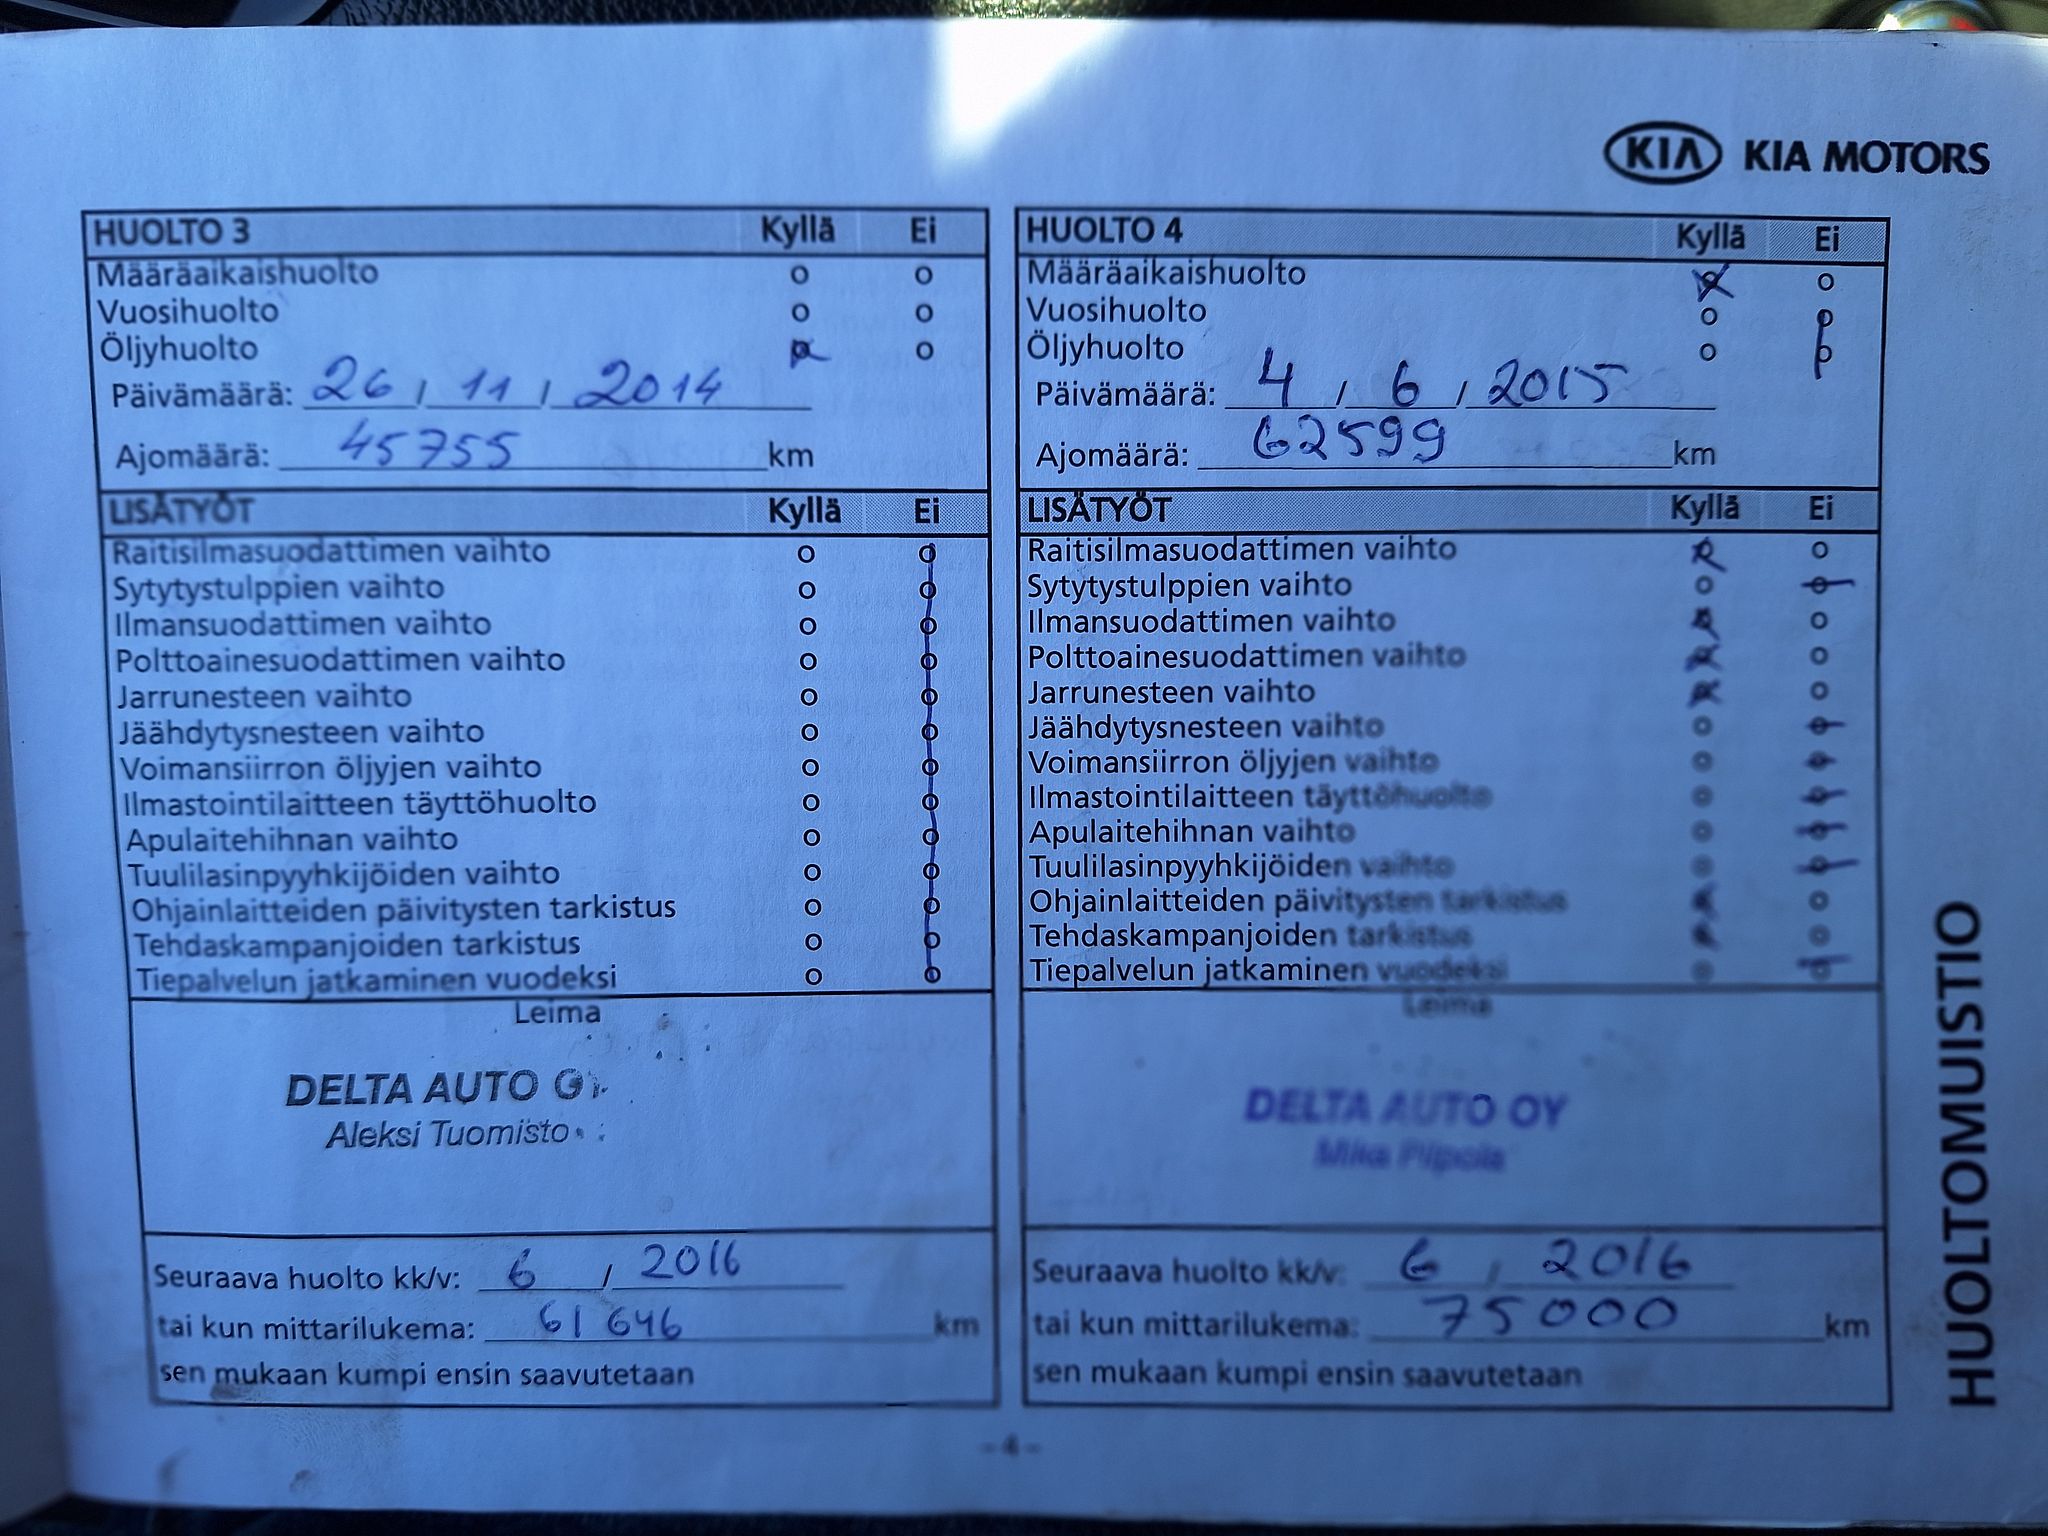 KIA KIA MOTORS
HUOLTO 3 Kyllä Ei
Määräaikaishuolto o o
Vuosihuolto o o
Öljyhuolto o o
Päivämäärä: 26 / 11 / 2014
Ajomäärä: 45755 km
LISÄTYÖT Kyllä Ei
Raitisilmasuodattimen vaihto o o
Sytytystulppien vaihto o o
Ilmansuodattimen vaihto o o
Polttoainesuodattimen vaihto o o
Jarrunesteen vaihto o o
Jäähdytysnesteen vaihto o o
Voimansiirron öljyjen vaihto o o
Ilmastointilaitteen täyttöhuolto o o
Apulaitehihnan vaihto o o
Tuulilasinpyyhkijöiden vaihto o o
Ohjainlaitteiden päivitysten tarkistus o o
Tehdaskampanjoiden tarkistus o o
Tiepalvelun jatkaminen vuodeksi o o
Leima
DELTA AUTO
Aleksi Tuomisto
Seuraava huolto kk/v: 6 / 2016
tai kun mittarilukema: 61 646 km
sen mukaan kumpi ensin saavutetaan
HUOLTO 4 Kyllä Ei
Määräaikaishuolto x o
Vuosihuolto o o
Öljyhuolto o o
Päivämäärä: 4 / 6 / 2015
Ajomäärä: 62599 km
LISÄTYÖT Kyllä Ei
Raitisilmasuodattimen vaihto x o
Sytytystulppien vaihto o o
Ilmansuodattimen vaihto x o
Polttoainesuodattimen vaihto x o
Jarrunesteen vaihto x o
Jäähdytysnesteen vaihto o o
Voimansiirron öljyjen vaihto o o
Ilmastointilaitteen täyttöhuolto o o
Apulaitehihnan vaihto o o
Tuulilasinpyyhkijöiden vaihto o o
Ohjainlaitteiden päivitysten tarkistus x o
Tehdaskampanjoiden tarkistus x o
Tiepalvelun jatkaminen vuodeksi o o
Leima
DELTA AUTO OY
Mika Piipola
Seuraava huolto kk/v: 6 / 2016
tai kun mittarilukema: 75000 km
sen mukaan kumpi ensin saavutetaan
HUOLTOMUISTIO
- 4 -